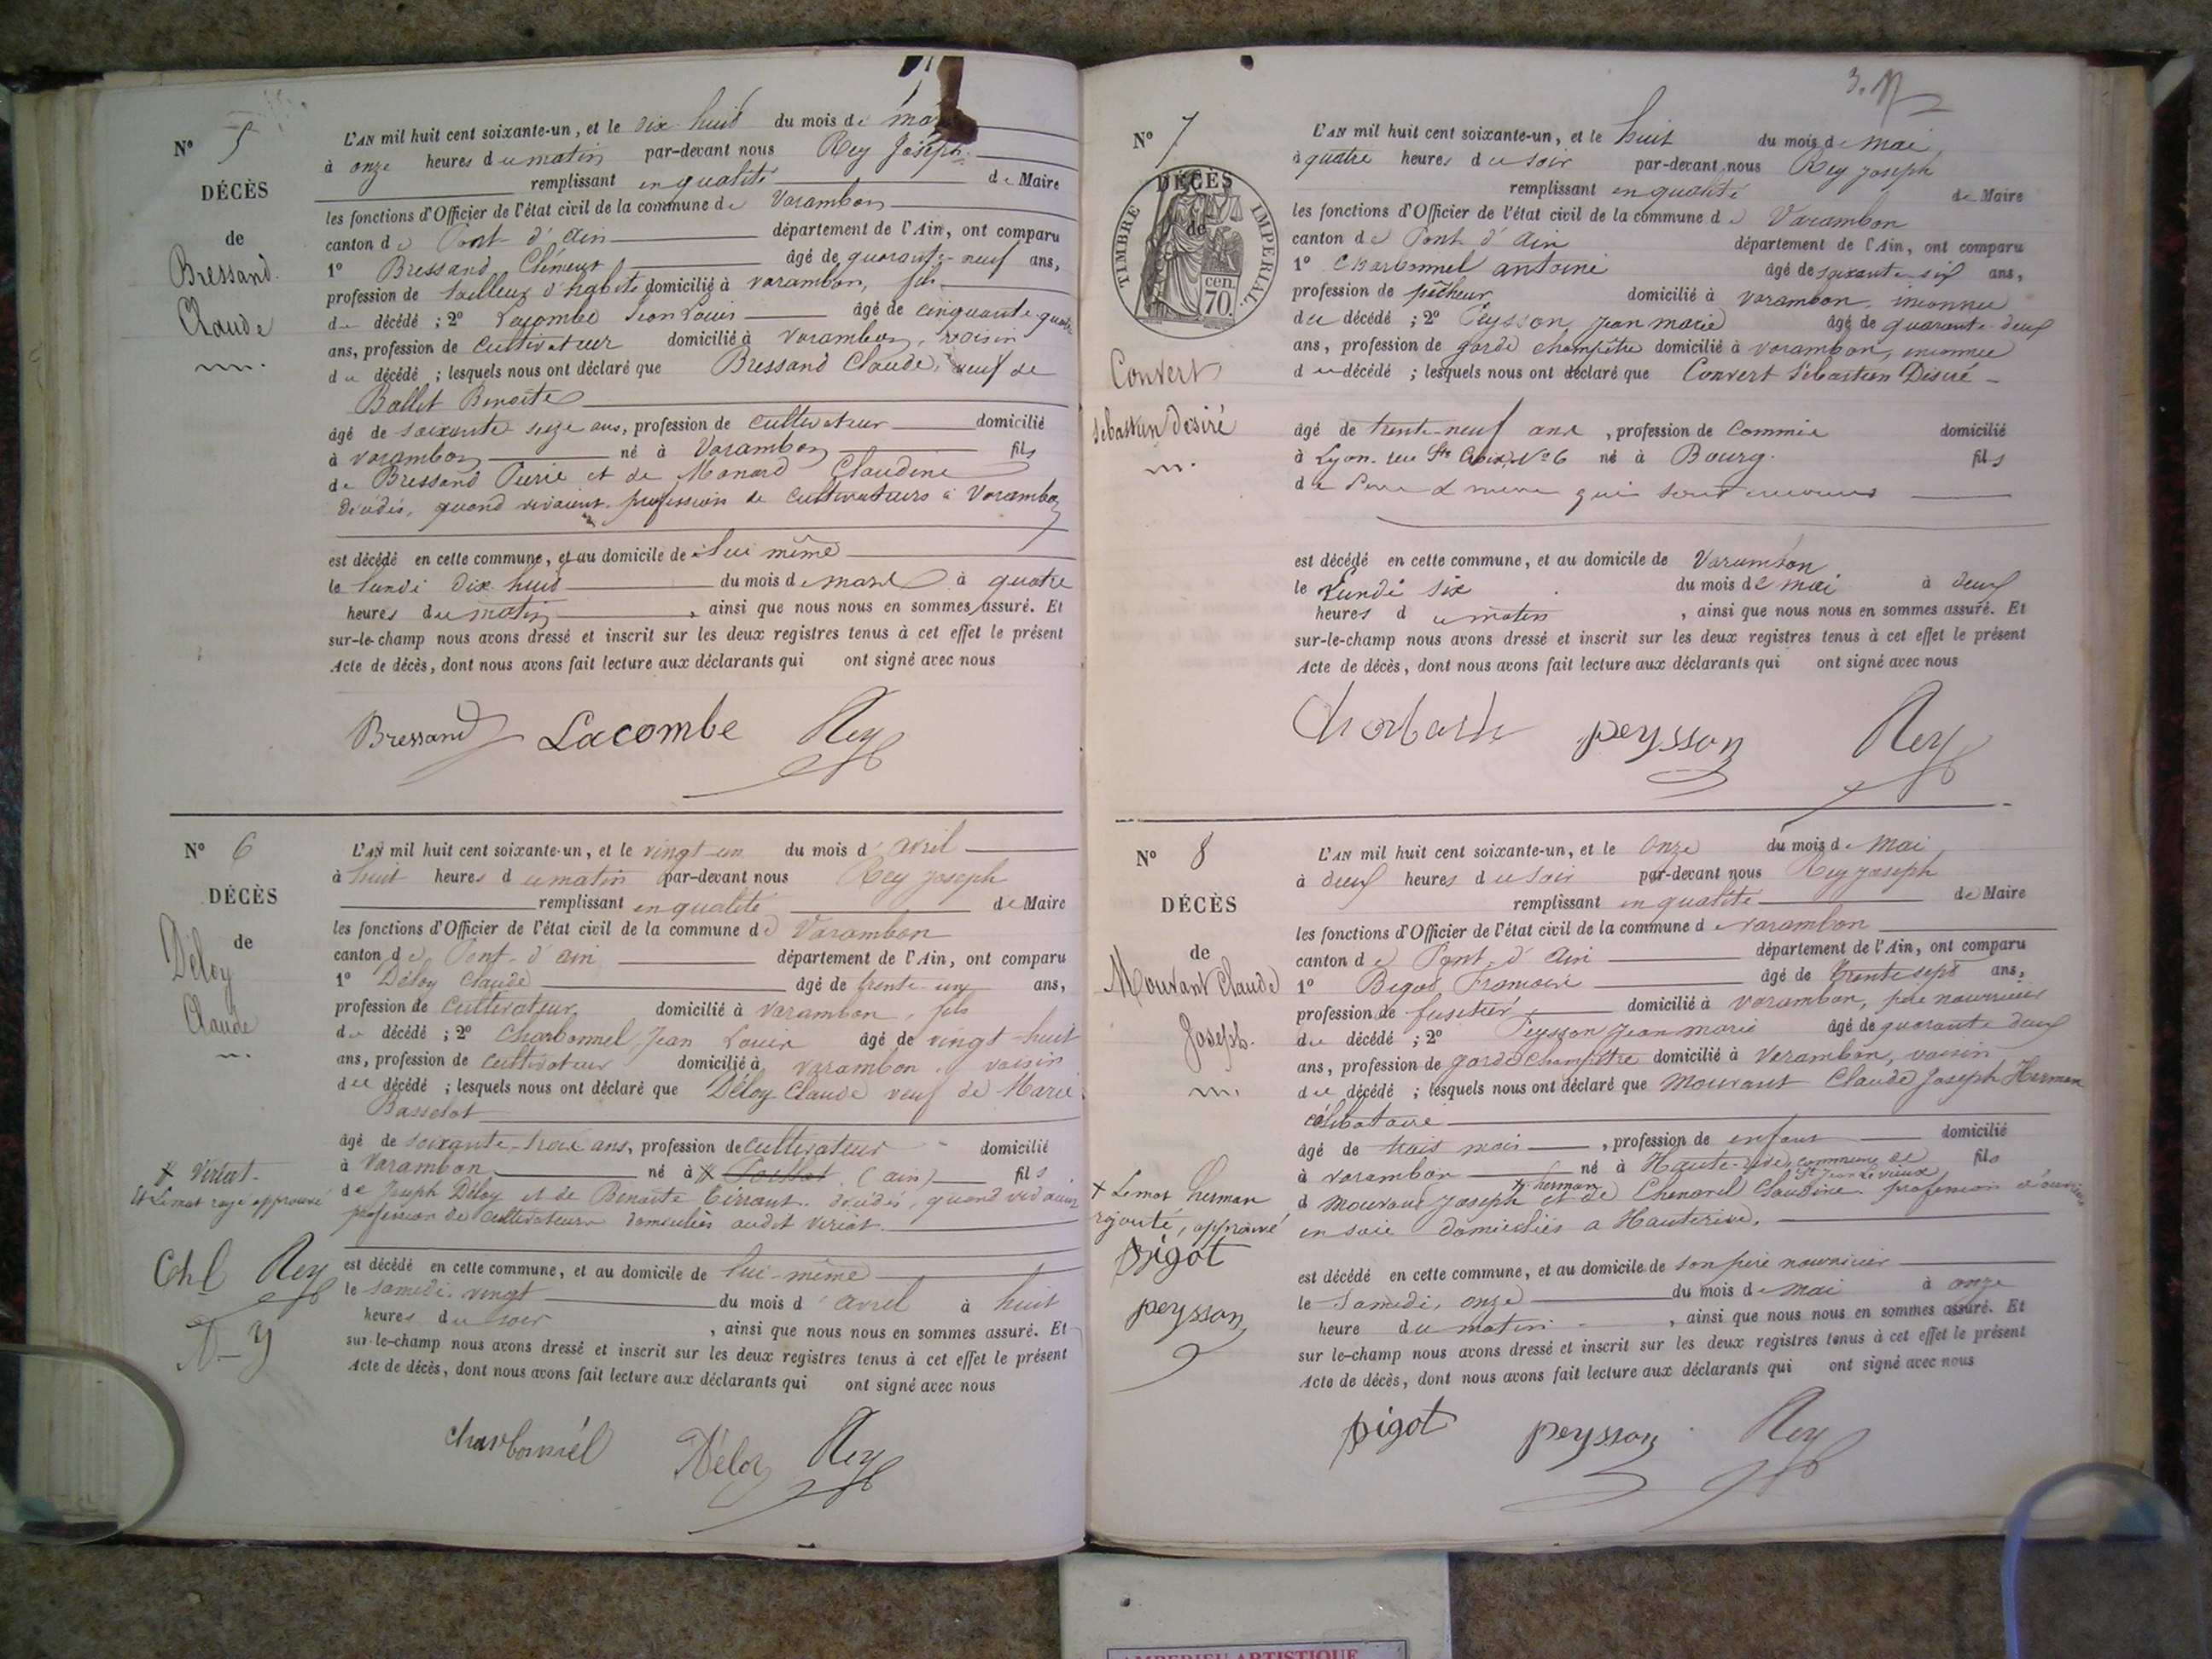 N° 5
DÉCÈS
de
Bressand
Claude
L'AN mil huit cent soixante-un, et le dix huit du mois de mars
à onze heures du matin par-devant nous Rey Joseph
remplissant en qualité de Maire
les fonctions d'Officier de l'état civil de la commune de Varambon
canton de Pont d'ain département de l'Ain, ont comparu
1° Bressand Clément âgé de quarante-neuf ans,
profession de tailleur d'habits domicilié à varambon, fils
du décédé ; 2° Lacombe Jean Louis âgé de cinquante quatre
ans, profession de cultivateur domicilié à Varambon, voisin
du décédé ; lesquels nous ont déclaré que Bressand Claude, veuf de
Ballet Benoite
âgé de soixante seize ans, profession de cultivateur domicilié
à varambon né à Varambon fils
de Bressand Pierre et de Monard Claudine
décédés, quand vivaient profession de cultivateurs à Varambon
est décédé en cette commune, et au domicile de lui même
le lundi dix huit du mois de mars à quatre
heures du matin, ainsi que nous nous en sommes assuré. Et
sur-le-champ nous avons dressé et inscrit sur les deux registres tenus à cet effet le présent
Acte de décès, dont nous avons fait lecture aux déclarants qui ont signé avec nous
Bressand Lacombe Rey
N° 6
DÉCÈS
de
Déloy
Claude
L'AN mil huit cent soixante-un, et le vingt-un du mois d'avril
à huit heures du matin par-devant nous Rey Joseph
remplissant en qualité de Maire
les fonctions d'Officier de l'état civil de la commune de Varambon
canton de Pont-d'ain département de l'Ain, ont comparu
1° Déloy Claude âgé de trente-un ans,
profession de cultivateur domicilié à varambon, fils
du décédé ; 2° Charbonnel Jean Louis âgé de vingt-huit
ans, profession de cultivateur domicilié à varambon, voisin
du décédé ; lesquels nous ont déclaré que Déloy Claude veuf de Marie
Basselot
âgé de soixante-trois ans, profession de cultivateur domicilié
à Varambon né à (ain) fils
de Joseph Déloy et de Benoite décédés, quand vivaient
profession de cultivateurs domiciliés audit viriat
Viriat
et le mot rayé approuvé
Ch l Rey
D-y
est décédé en cette commune, et au domicile de lui-même
le samedi vingt du mois d'avril à huit
heures du soir, ainsi que nous nous en sommes assuré. Et
sur-le-champ nous avons dressé et inscrit sur les deux registres tenus à cet effet le présent
Acte de décès, dont nous avons fait lecture aux déclarants qui ont signé avec nous
charbonnél Déloy Rey
3.
N° 7
DÉCÈS
de
TIMBRE IMPERIAL
70 cen.
Convert
Sébastien Désiré
L'AN mil huit cent soixante-un, et le huit du mois de mai
à quatre heures du soir par-devant nous Rey Joseph
remplissant en qualité de Maire
les fonctions d'Officier de l'état civil de la commune de Varambon
canton de Pont d'ain département de l'Ain, ont comparu
1° Charbonnel antoine âgé de soixante six ans,
profession de pêcheur domicilié à varambon, inconnu
du décédé ; 2° Peysson Jean marie âgé de quarante-deux
ans, profession de garde champêtre domicilié à varambon, inconnu
du décédé ; lesquels nous ont déclaré que Convert Sébastien Désiré
âgé de trente-neuf ans, profession de commis domicilié
à Lyon, rue Ste Croix, N° 6 né à Bourg. fils
de Père & mère qui sont inconnus
est décédé en cette commune, et au domicile de Varambon
le Lundi six du mois de mai à deux
heures du matin, ainsi que nous nous en sommes assuré. Et
sur-le-champ nous avons dressé et inscrit sur les deux registres tenus à cet effet le présent
Acte de décès, dont nous avons fait lecture aux déclarants qui ont signé avec nous
peysson Rey
N° 8
DÉCÈS
de
Mouvant Claude
Joseph
L'AN mil huit cent soixante-un, et le onze du mois de mai
à deux heures du soir par-devant nous Rey Joseph
remplissant en qualité de Maire
les fonctions d'Officier de l'état civil de la commune de varambon
canton de Pont d'ain département de l'Ain, ont comparu
1° Bigot François âgé de trente sept ans,
profession de domicilié à varambon, père nourricier
du décédé ; 2° Peysson Jean marie âgé de quarante deux
ans, profession de garde champêtre domicilié à Varambon, voisin
du décédé ; lesquels nous ont déclaré que mouvant Claude Joseph Herman
célibataire
âgé de trois mois, profession de enfant domicilié
à varambon né à Haute-rive, commune de St Jean le vieux fils
d mouvant Joseph herman et de Chenavel Claudine profession d'ouvriers
en soie domiciliés a Hauterive,
+ Le mot herman
rajouté, approuvé
pigot
peysson
est décédé en cette commune, et au domicile de son père nourricier
le Samedi, onze du mois de mai à onze
heure du matin, ainsi que nous nous en sommes assuré. Et
sur le-champ nous avons dressé et inscrit sur les deux registres tenus à cet effet le présent
Acte de décès, dont nous avons fait lecture aux déclarants qui ont signé avec nous
pigot peysson Rey